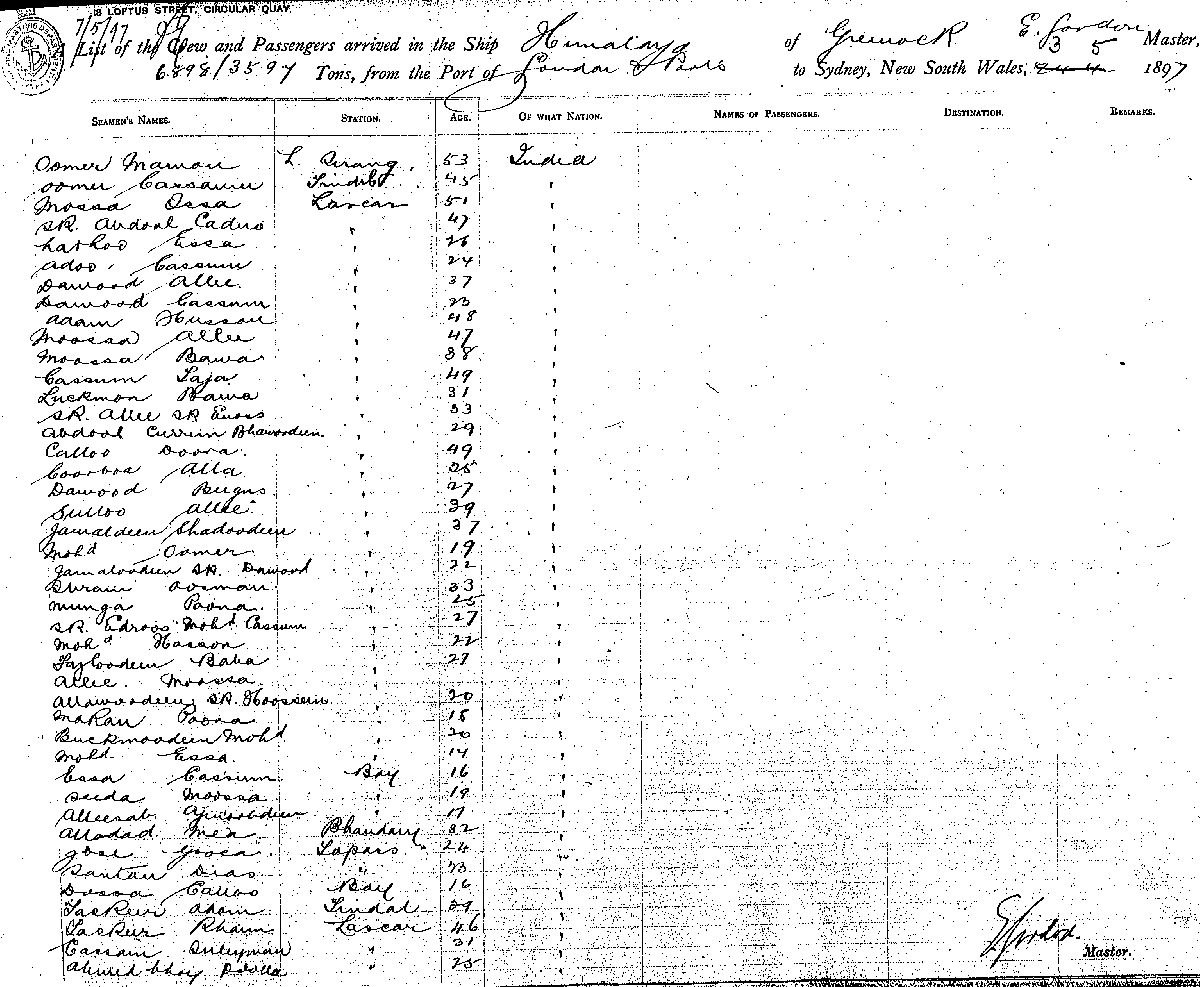 18 LOFTUS STREET, CIRCULAR QUAY
7/5/97
A List of the Crew and Passengers arrived in the Ship Himalaya of Greenock E. Gordon Master,
6898/3597 Tons, from the Port of London & Ports to Sydney, New South Wales, 3 5 1897
SEAMEN'S NAMES. STATION. AGE. OF WHAT NATION. NAMES OF PASSENGERS. DESTINATION. REMARKS.
Oomer Mamon L. Serang. 53 India
Oomer Cassum Tindel 45 "
Moosa Essa Lascar 51 "
SR. Abdool Cader " 47 "
Essa " 26 "
Adoo. Cassum " 24 "
Dawood Allee. " 37 "
Dawood Cassum " 23 "
Adam Husson " 48 "
Moossa Allee " 47 "
Moossa Bawa " 38 "
Cassum Laja " 49 "
Luckmon Bawa " 31 "
SR. Allee SR Enoos " 33 "
Abdool Currim Bhawoodeen " 29 "
Calloo Doora. " 49 "
Alla " 25 "
Dawood " 27 "
Sulloo Allee " 39 "
Jamaldeen Shadoodeen " 37 "
Mohd Oomer " 19 "
Jamaloodeen SR. Dawood " 22 "
Ibram Oosman " 33 "
Munga Poona. " 25 "
SR. Edroos Mohd Cassum " 27 "
Mohd Hasson " 22 "
Baba " 27 "
Allee. Moossa. " "
Allawoodeen SR. Hoossein " 20 "
Makan Poona " 18 "
Buckmoodeen Mohd " 20 "
Mohd Essa. " 14 "
Essa Cassum Boy 16 "
Seeda Moossa " 19 "
Alleesab " 17 "
Allodad. Mea Bhandary 32 "
Jose Topars 24 "
Santan Dias " 33 "
Dossa Calloo Boy 16 "
Adam Tindal 39 "
Lascar 46 "
Cassam Suleyman " 31 "
Ahmed " 25 "
E Gordon.
Master.